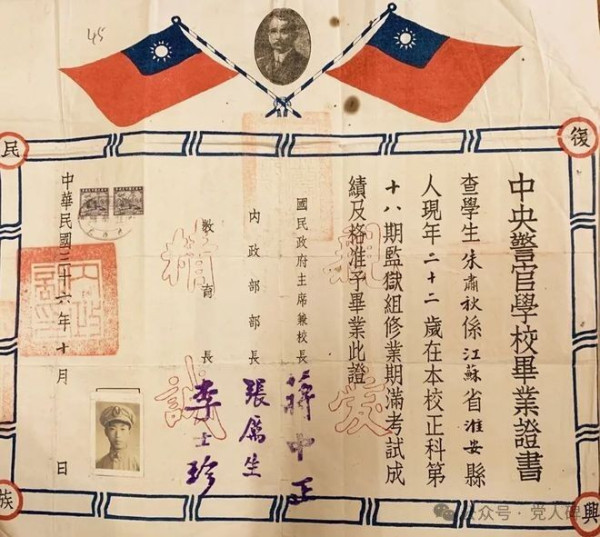 45
復
興
民
族
中央警官學校畢業證書
查學生朱肅秋係江蘇省淮安縣
人現年二十二歲在本校正科第
十八期監獄組修業期滿考試成
績及格准予畢業此證
國民政府主席兼校長 蔣中正
內政部部長 張厲生
教育長 李士珍
中華民國三十六年十月 日
親愛
精誠
公众号·党人碑